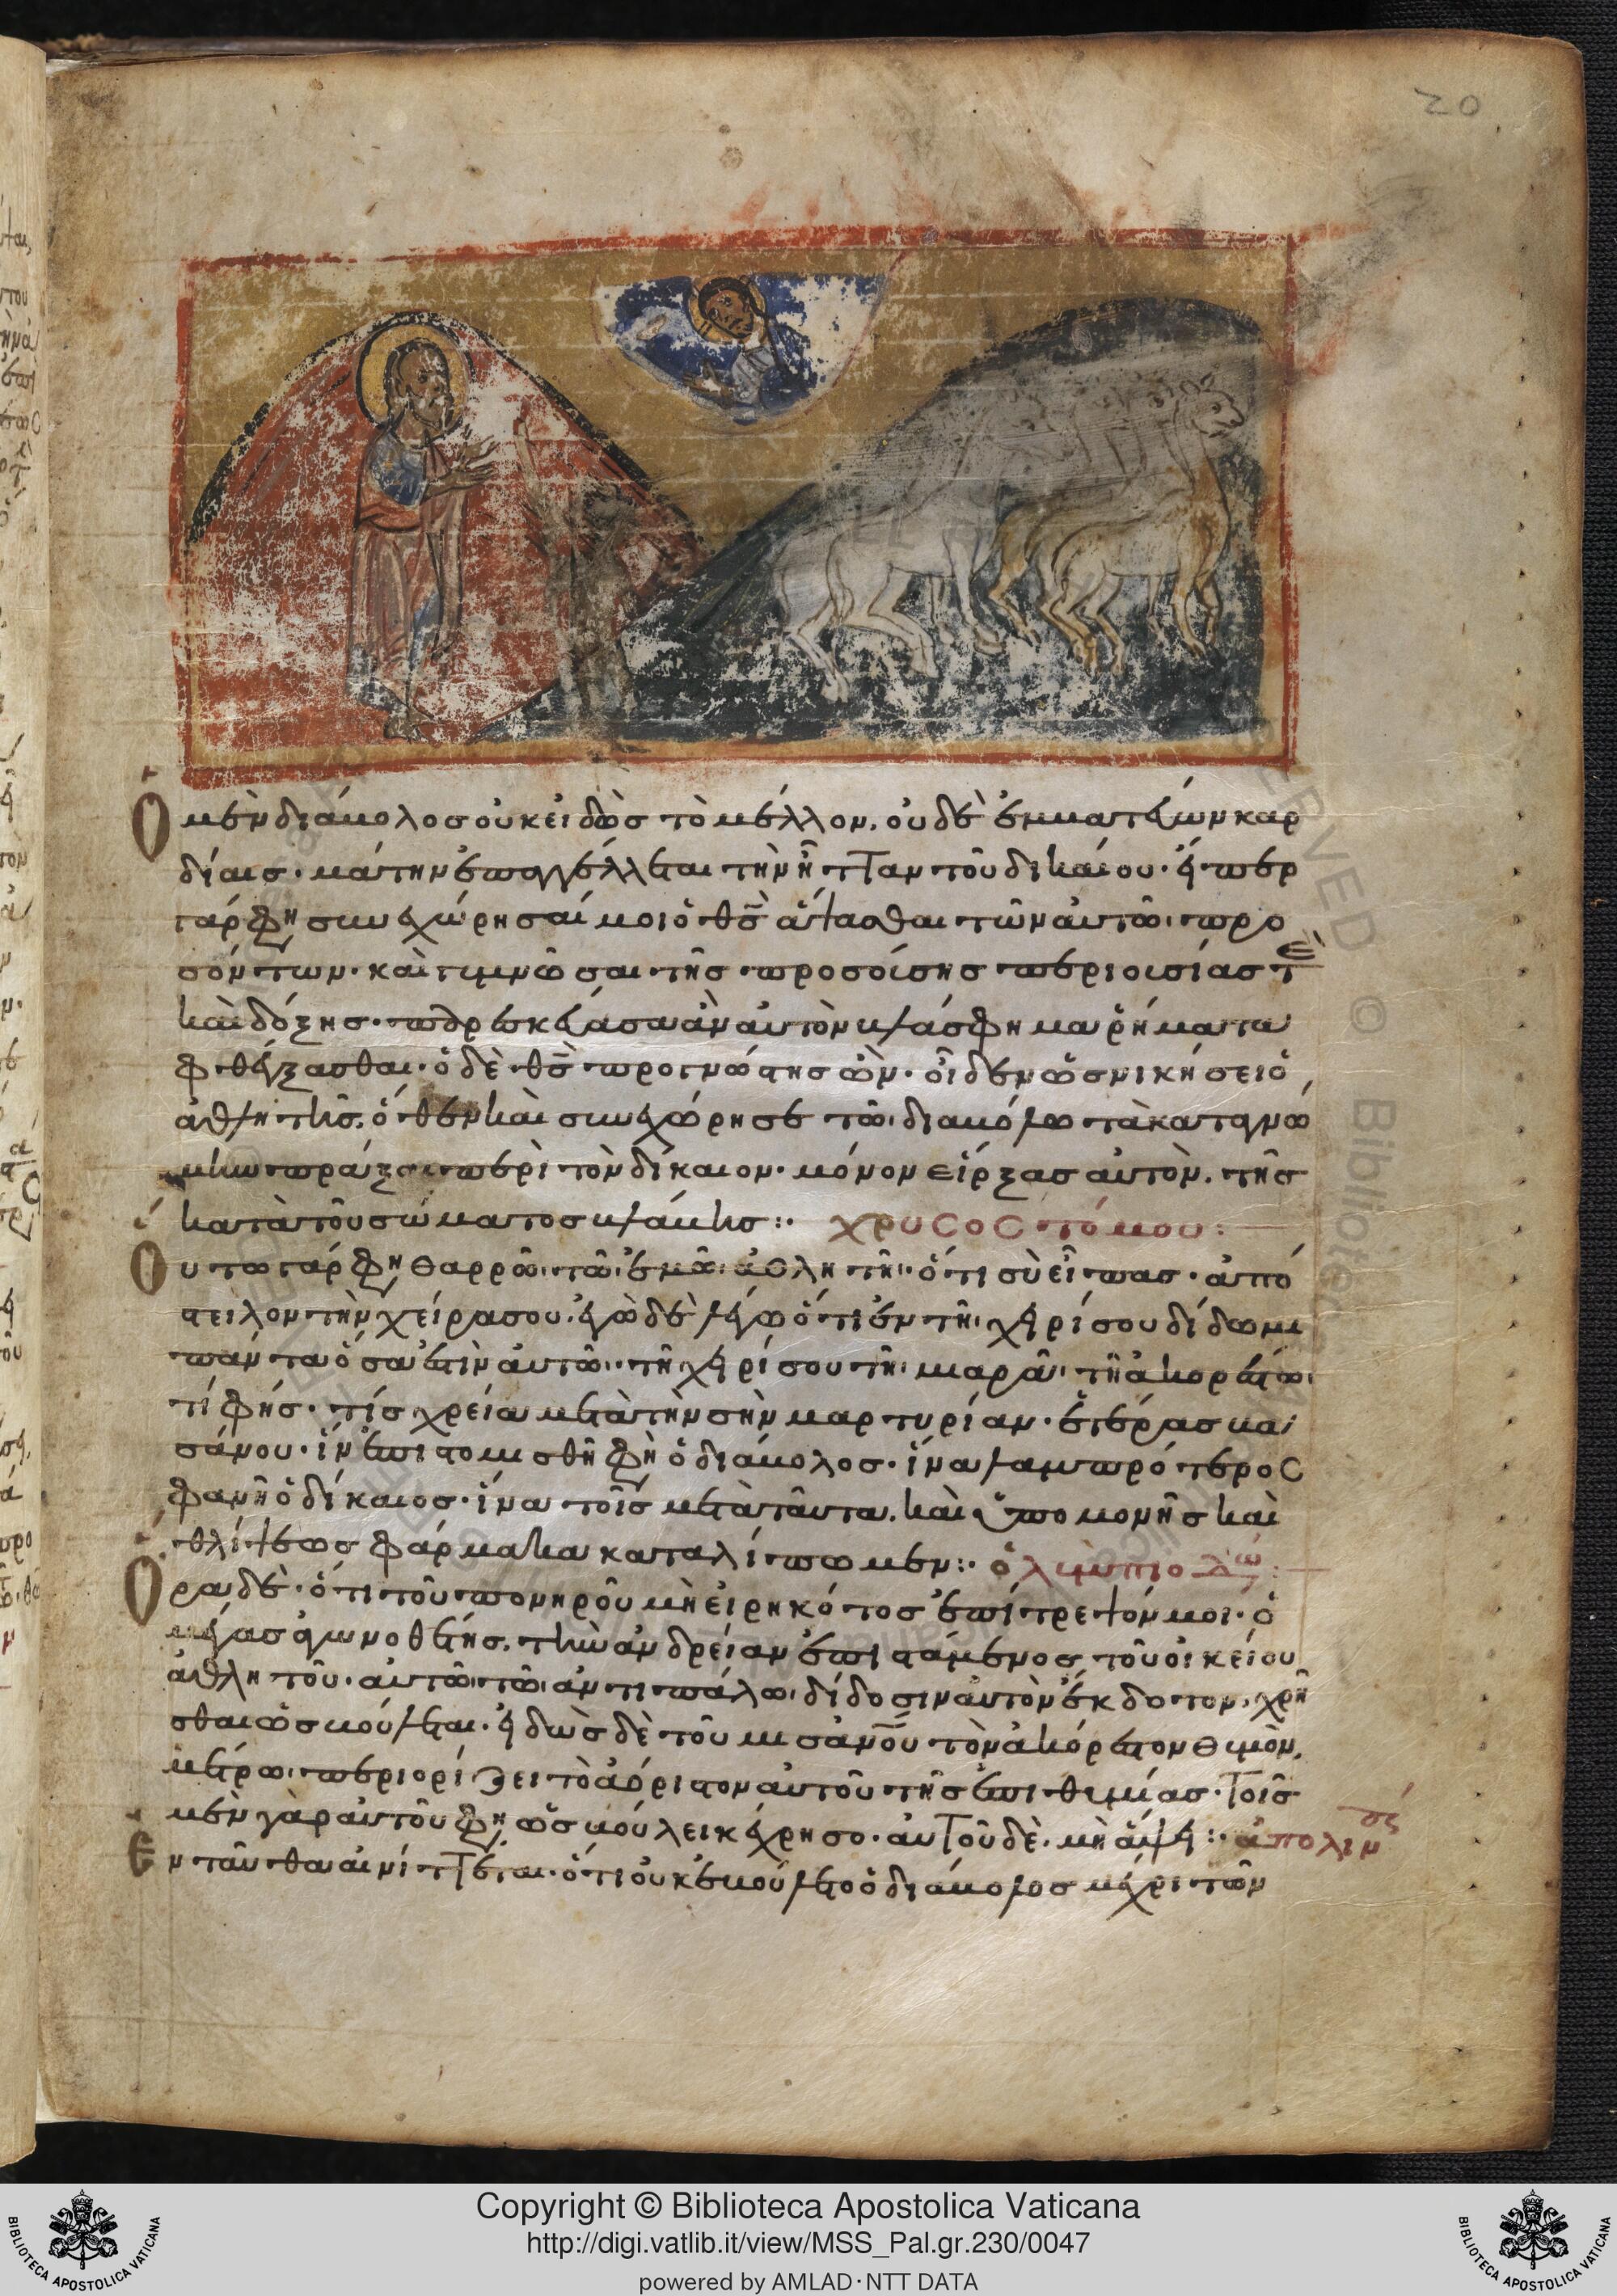 20
Ὁ μὲν διάβολος οὐκ εἰδὼς τὸ μέλλον. οὐδὲ ἐμβατεύων καρ
δίαις. μάτην ἐπαγγέλλεται τὴν ἧτταν τοῦ δικαίου. εἰ περ
γάρ φη συγχώρησαί μοι ὁ θς ἅψασθαι τῶν αὐτῶ προ
σόντων. καὶ γυμνῶσαι τῆς προσούσης περιουσίας τὲ
καὶ δόξης. παρεσκεύασα ἂν αὐτὸν βλάσφημα ῥήματα
φθέγξασθαι. ὁ δὲ θς προγνώστης ὢν. οἶδεν ὡς νικήσει ὁ
ἀθλητής. ὅθεν καὶ συγχώρησε τῶ διαβόλω τὰ κατα γνώ
μην πράξαι περὶ τὸν δίκαιον. μόνον εἴρξας αὐτὸν. τῆς
κατὰ τοῦ σώματος βλάβης :· χρυσοστόμου :
Οὕτω γάρ φη θαρρῶ τῶ ἐμῶ ἀθλητῆ. ὅτι σὺ εἶπας. ἀπό
στειλον τὴν χεῖρα σου. ἐγὼ δὲ λέγω ὅτι ἐν τῆ χειρί σου δίδωμι
πάντα ὅσα ἐστὶν αὐτῶ. τῆ χειρί σου τῆ μιαρᾶ τῆ ἀκορέστω
τί φής. τίς χρεία μετὰ τὴν σὴν μαρτυρίαν. ἑτέρας βα
σάνου. ἵν ἐπιστομισθῆ φὴ ὁ διάβολος. ἵνα λαμπρότερος
φανῆ ὁ δίκαιος. ἵνα τοῖς μετὰ ταῦτα. καὶ ὑπομονῆς καὶ
θλίψεως φάρμακα καταλίπωμεν :· ὀλυμπιοδώ :
Ὅρα δὲ. ὅτι τοῦ πονηροῦ μὴ εἰρηκότος ἐπίτρεψόν μοι. ὁ
μέγας ἀγωνοθέτης. τὴν ἀνδρείαν ἐπιστάμενος τοῦ οἰκείου
ἀθλητοῦ. αὐτῶ τῶ ἀντιπάλω δίδοσιν αὐτὸν ἔκδοτον. χρῆ
σθαι ὡς βούλεται. εἰδὼς δὲ τοῦ μισάνου τὸν ἀκόρεστον θυμὸν.
μέτρω περιορίζει τὸ ἀόριστον αὐτοῦ τῆς ἐπιθυμίας. τοῖς
μὲν γὰρ αὐτοῦ φη ὡς βούλει κέχρησο. αὐτοῦ δὲ. μὴ ἅψη :· ἀπολιν
Ἐνταῦθα αἰνίττεται. ὅτι οὐκ ἐβούλετο ὁ διάβολος μέχρι τῶν
Copyright © Biblioteca Apostolica Vaticana
http://digi.vatlib.it/view/MSS_Pal.gr.230/0047
powered by AMLAD·NTT DATA
BIBLIOTECA APOSTOLICA VATICANA
BIBLIOTECA APOSTOLICA VATICANA